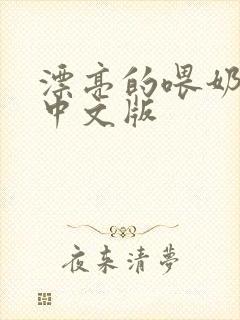 漂亮的喂奶
中文版
夜来清夢